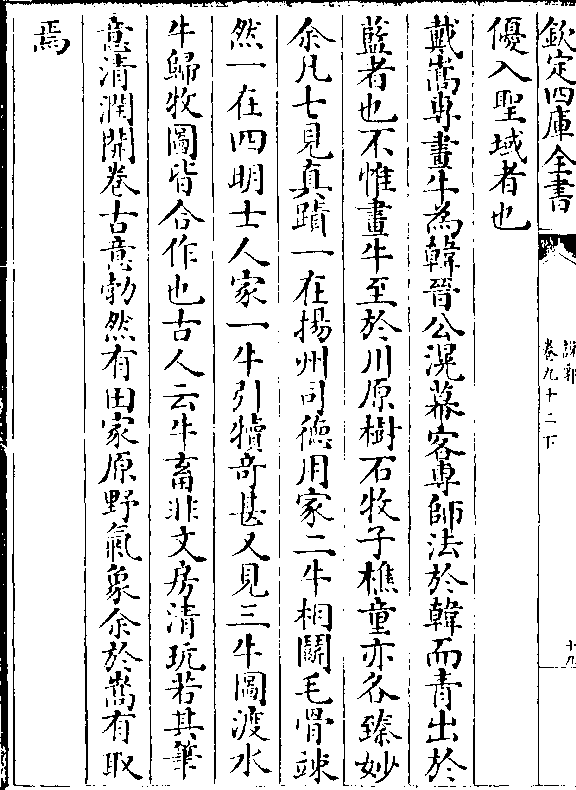 欽定四庫全書
說郛
卷九十二下
十九
優入聖域者也
戴嵩專畫牛為韓晉公滉幕客專師法於韓而青出於
藍者也不惟畫牛至於川原樹石牧子樵童亦各臻妙
余凡七見真蹟一在揚州司德用家二牛相鬭毛骨竦
然一在四明士人家一牛引犢奇甚又見三牛圖渡水
牛歸牧圖皆合作也古人云牛畜非文房清玩若其筆
意清潤開卷古意勃然有田家原野氣象余於嵩有取
焉